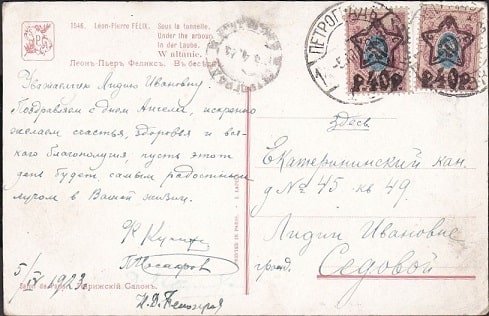 1546. Léon-Pierre FELIX.
Sous la tonnelle.
Under the arbour.
In der Laube.
W altanie.
Леонъ-Пьеръ Феликсъ. Въ бесѣд
ПЕТРОГРАДЪ
р.40р. р.40р.
Уважаемая Лидию Ивановну!
Поздравляем с днем Ангела, искренно
желаем счастья, здоровья и вся-
кого благополучия, пусть этот
день будет самым радостным
лучом в Вашей жизни.
5/IV 1923г.
Salon de Paris. Парижскій Салонъ.
Здесь
Екатерининский кан.
д № 45 кв 49
Лидии Ивановне
гражд. Седовой